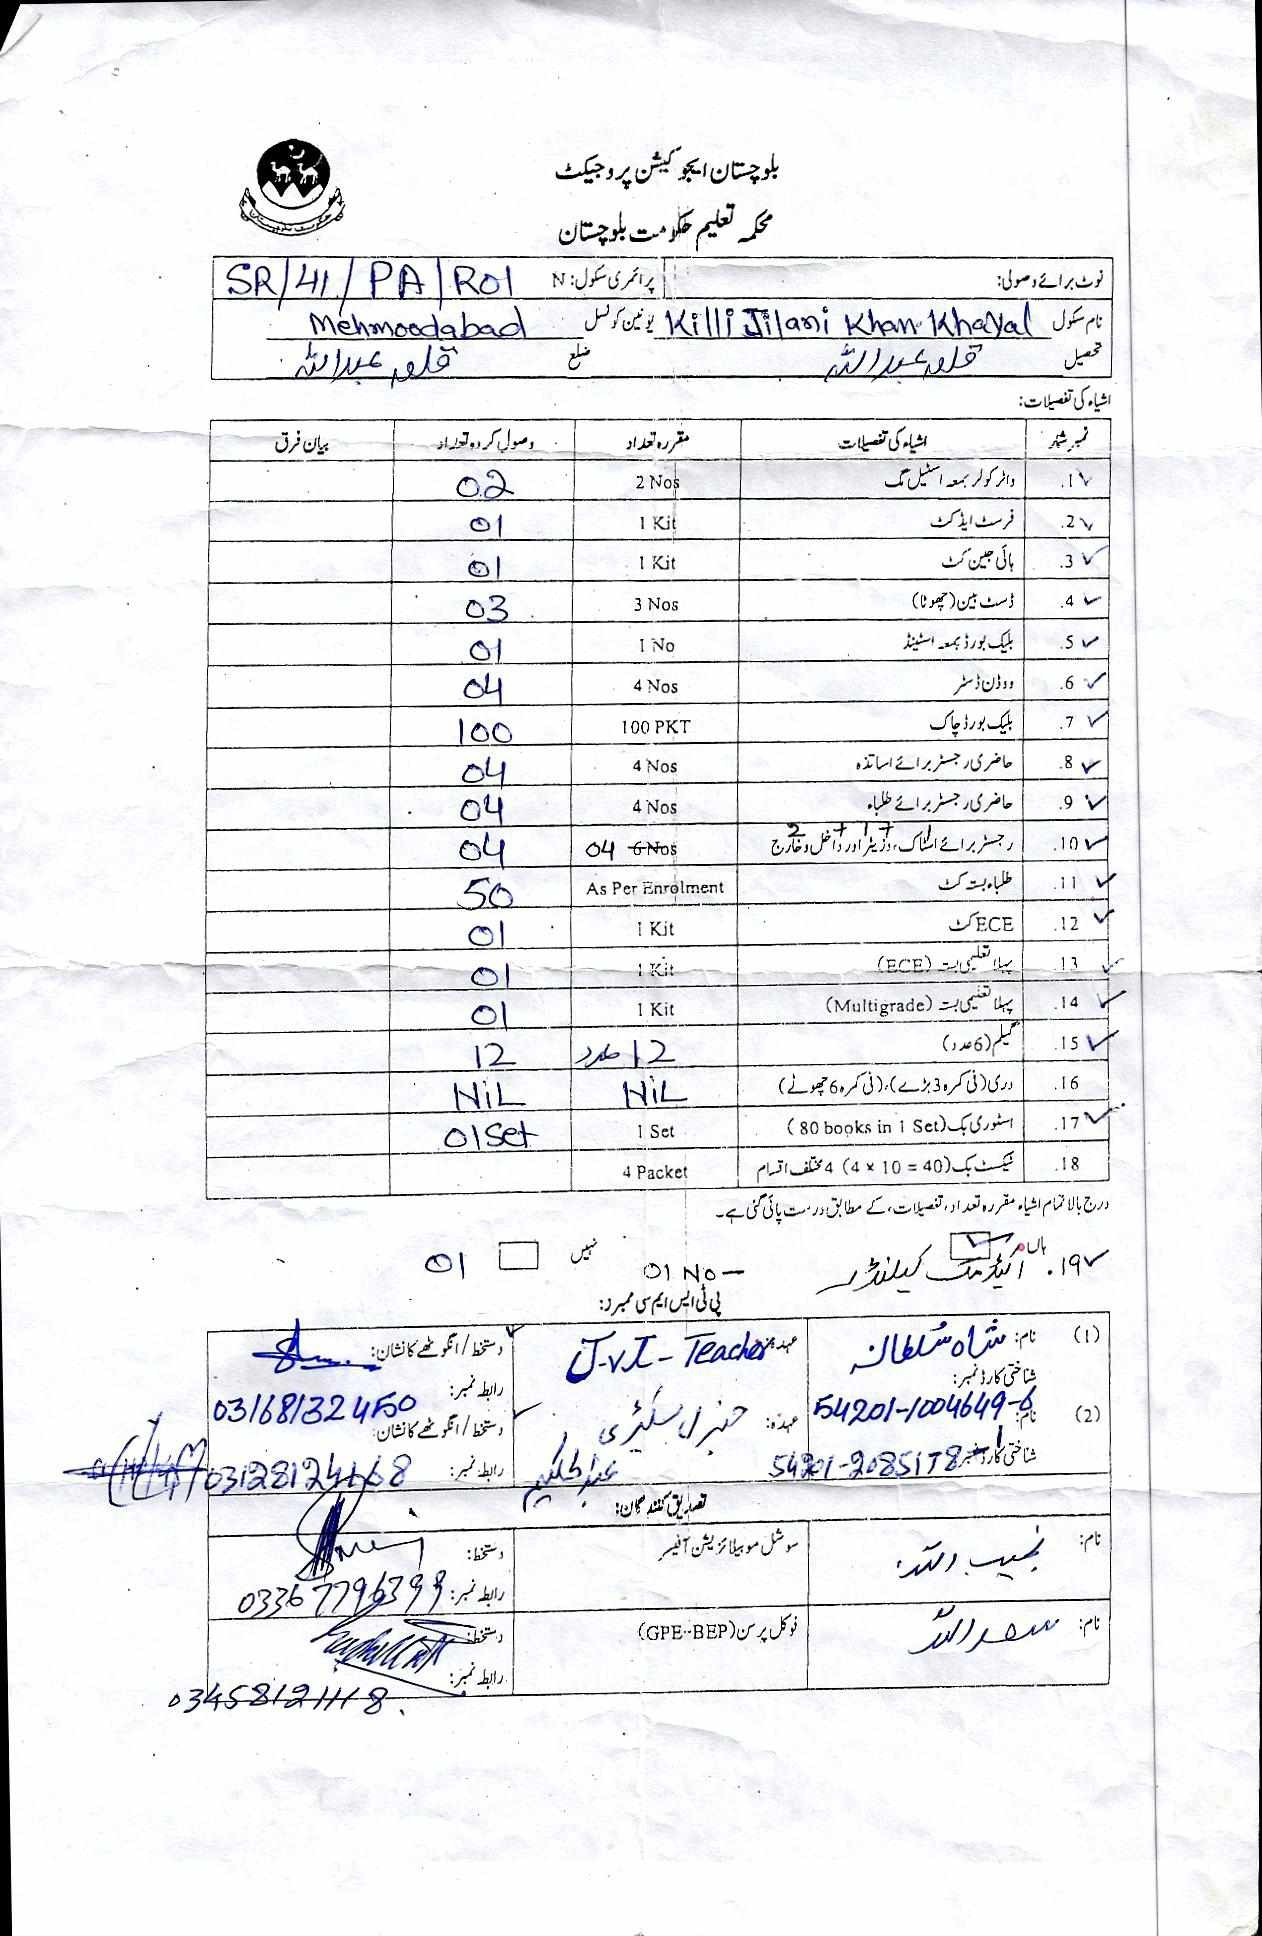 بلوچستان ایجوکیشن پروجیکٹ
محکمہ تعلیم حکومت بلوچستان
نوٹ برائے وصولی: پرائمری سکول: N SR/41/PA/R01
نام سکول Killi Jilani Khan Khayal یونین کونسل Mehmoodabad
تحصیل قلعہ عبداللہ ضلع قلعہ عبداللہ
اشیاء کی تفصیلات:
نمبر شمار اشیاء کی تفصیلات مقررہ تعداد وصول کردہ تعداد بیان فرق
1. واٹر کولر بمعہ اسٹیل مگ 2 Nos 02
2. فرسٹ ایڈ کٹ 1 Kit 01
3. ہائی جین کٹ 1 Kit 01
4. ڈسٹ بین (چھوٹا) 3 Nos 03
5. بلیک بورڈ بمعہ اسٹینڈ 1 No 01
6. ووڈن ڈسٹر 4 Nos 04
7. بلیک بورڈ چاک 100 PKT 100
8. حاضری رجسٹر برائے اساتذہ 4 Nos 04
9. حاضری رجسٹر برائے طلباء 4 Nos 04
2 + 1 + 1
10. رجسٹر برائے اسٹاک، وزیٹر اور داخل و خارج 6 Nos 04 04
11. طلباء بستہ کٹ As Per Enrolment 50
12. ECE کٹ 1 Kit 01
13. پہلا تعلیمی بستہ (ECE) 1 Kit 01
14. پہلا تعلیمی بستہ (Multigrade) 1 Kit 01
15. گلیم (6 عدد) 12 عدد 12
16. دری (فی کمرہ 3 بڑے)، (فی کمرہ 6 چھوٹے) NiL NiL
17. اسٹوری بک (80 books in 1 Set) 1 Set 01 Set
18. ٹیکسٹ بک (4 × 10 = 40) 4 مختلف اقسام 4 Packet
درج بالا تمام اشیاء مقررہ تعداد، تفصیلات، کے مطابق درست پائی گئی ہے۔
ہاں نہیں
19. اکیڈمک کیلنڈر 01 No — 01
پی ٹی ایس ایم سی ممبرز:
(1) نام: شاہ سلطانہ عہدہ: J.V.T - Teacher دستخط / انگوٹھے کا نشان:
شناختی کارڈ نمبر: 54201-1004649-6 رابطہ نمبر: 03168132450
(2) نام: عبدالحکیم عہدہ: جنرل سیکٹری دستخط / انگوٹھے کا نشان:
شناختی کارڈ نمبر: رابطہ نمبر: 03128124168
تصدیق کنندگان:
نام: نجیب اللہ سوشل موبیلائزیشن آفیسر دستخط:
رابطہ نمبر: 03367796399
نام: سعداللہ فوکل پرسن (GPE-BEP) دستخط:
رابطہ نمبر: 03458121118